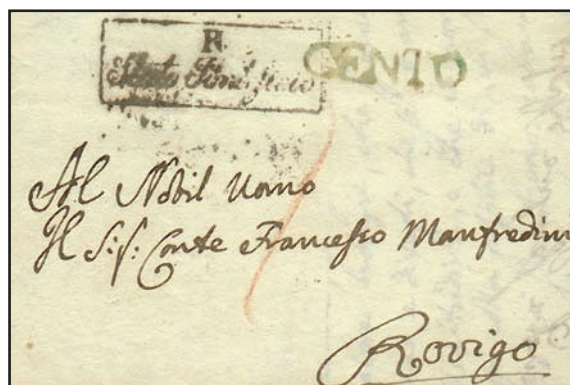 R.
Stato Pontificio
CENTO
Al Nobil Uomo
Il Sig: Conte Francesco Manfredini
Rovigo